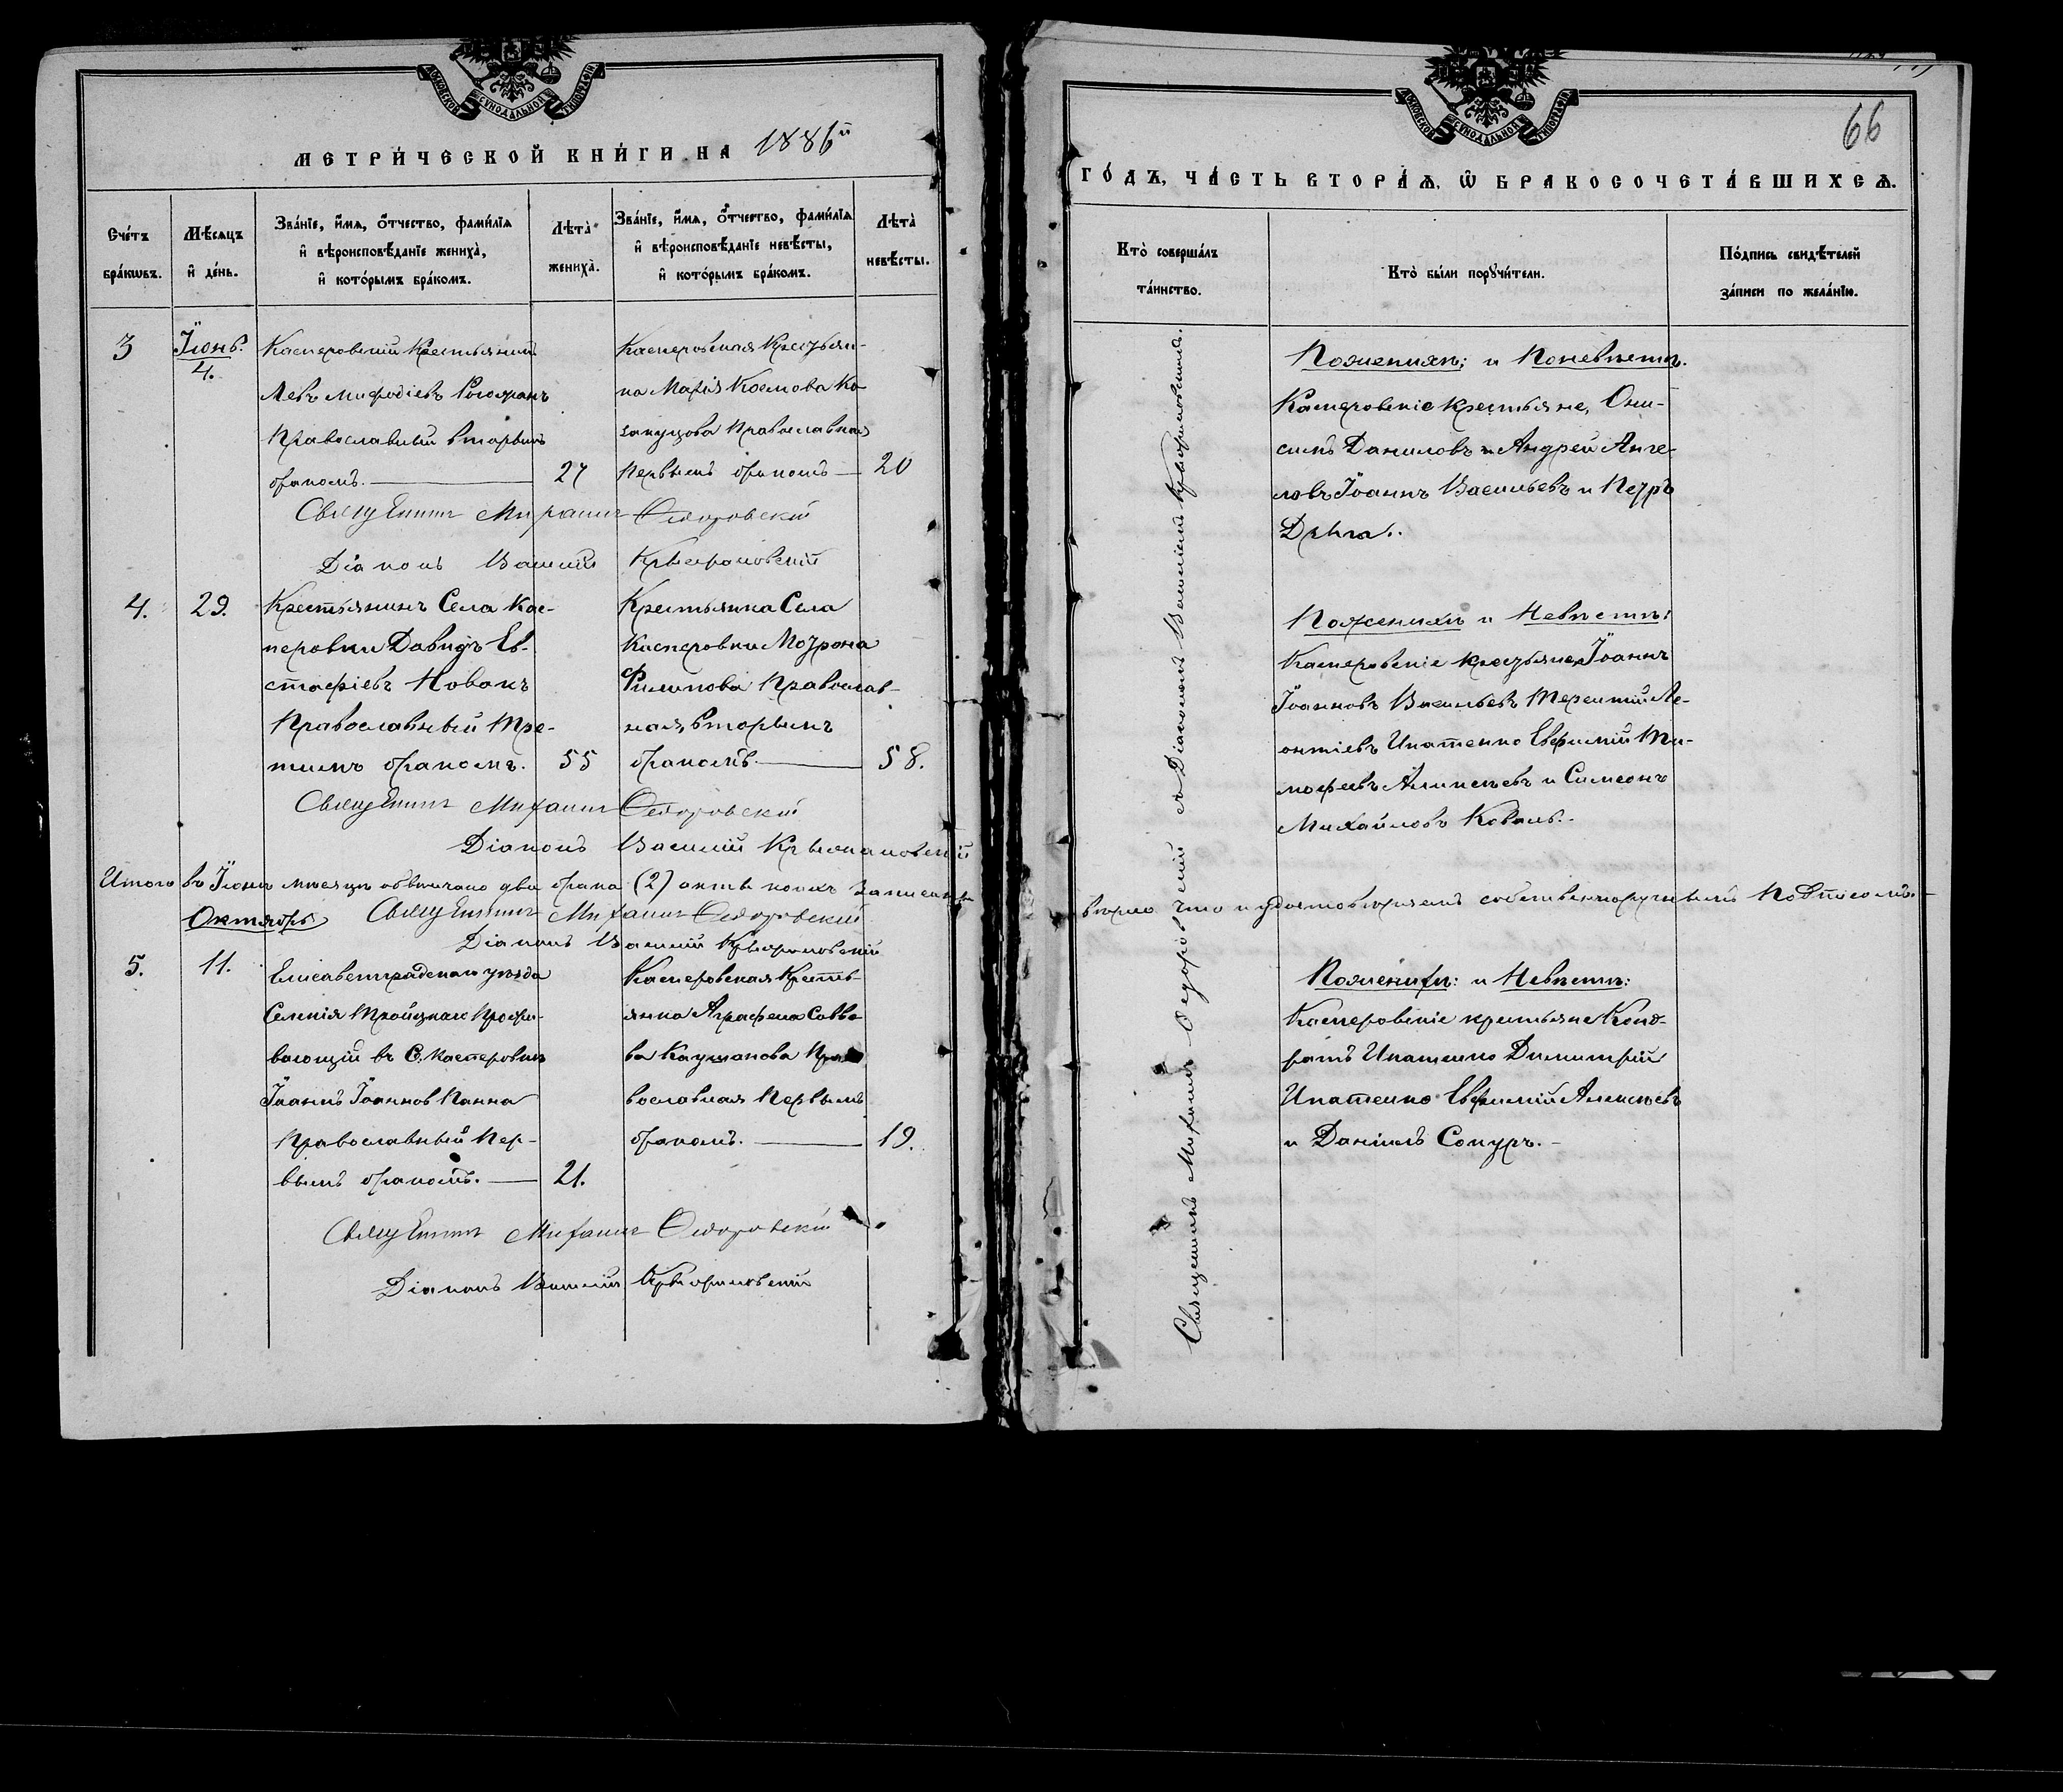 МОСКОВСКОЙ СѴНОДАЛЬНОЙ ТИПОГРАФІИ
МЕТРИ́ЧЕСКОЙ КНИ́ГИ НА 1886й
Сче́тъ бра́кѡвъ.
Мѣ́сяцъ и҆ де́нь.
Зва́нїе, и҆́мѧ, ѻ҆́тчество, фамѝлїѧ
и҆ вѣроисповѣ́данїе жениха̀,
и҆ кото́рымъ бра́комъ.
Лѣта̀
жениха̀.
Зва́нїе, и҆́мѧ, ѻ҆́тчество, фамѝлїѧ
и҆ вѣроисповѣ́данїе невѣ́сты,
и҆ кото́рымъ бра́комъ.
Лѣта̀
невѣ́сты.
3
Іюнь.
4.
Касперовскій Крестьянинъ
Левъ Мифодіевъ
Православный вторымъ
бракомъ.
27
Касперовская Крестьян-
ка Марія Космова Ка-
запуцова Православная
Первымъ бракомъ
20
Священникъ Михаилъ Ѳедоровскій
Діаконъ Василій Крыжановскій
4.
29.
Крестьянинъ Села Кас-
перовки Давидъ Ев-
стафіевъ Новакъ
Православный Тре-
тимъ бракомъ.
55
Крестьянка Села
Касперовки Мотрона
Филипова Православ-
ная, вторымъ
бракомъ.
58.
Священникъ Михаилъ Ѳедоровскій
Діаконъ Василій Крыжановскій
Итого въ Іюнѣ мѣсяцѣ обвѣнчано два брака (2) акты коихъ записаны
Октябрь Священникъ Михаилъ Ѳедоровскій
Діаконъ Василій Крыжановскій
5.
11.
Елисаветградскаго уѣзда
Селенія Тройцкаго Прожи-
вающій въ С. Касперовкѣ
Іоаннъ Іоанновъ Панна
Православный Пер-
вымъ бракомъ.
21.
Касперовская Кресть-
янка Аграфена Савво-
ва Каушанова Пра
вославная Первымъ
бракомъ.
19.
Священникъ Михаилъ Ѳедоровскій
Діаконъ Василій Крыжановскій
66
МОСКОВСКОЙ СѴНОДАЛЬНОЙ ТИПОГРАФІИ
ГО́ДЪ, ЧА́СТЬ ВТОРА́Ѧ, Ѡ҆ БРАКОСОЧЕТА́ВШИХСѦ.
Кто̀ соверша́лъ
та́инство.
Кто̀ бы́ли порꙋчи́тели.
По́дпись свидѣ́телей
за́писи по жела́нїю.
Священникъ Михаилъ Ѳедоровскій съ Діакономъ Василіемъ Крыжановскимъ.
Поженихѣ; и Поневѣстѣ.
Касперовскіе крестьяне, Они-
симъ Даниловъ и Андрей Анге-
ловъ Іоаннъ Васильевъ и Петръ
Дрыга.
Поженихѣ и Невѣстѣ:
Касперовскіе крестьяне Іоаннъ
Іоанновъ Васильевъ Терентій Ле-
онтіевъ Ипатенко Евфимій Ти-
мофеевъ Алексѣевъ и Симеонъ
Михайловъ Коваль.
вѣрно что и удостовѣряемъ собственноручнымъ Подписомъ.
Поженихѣ: и Невѣстѣ:
Касперовскіе крестьяне Конд-
ратъ Ипатенко Димитрій
Ипатенко Евфимій Алексѣевъ
и Даніилъ Сокуръ.